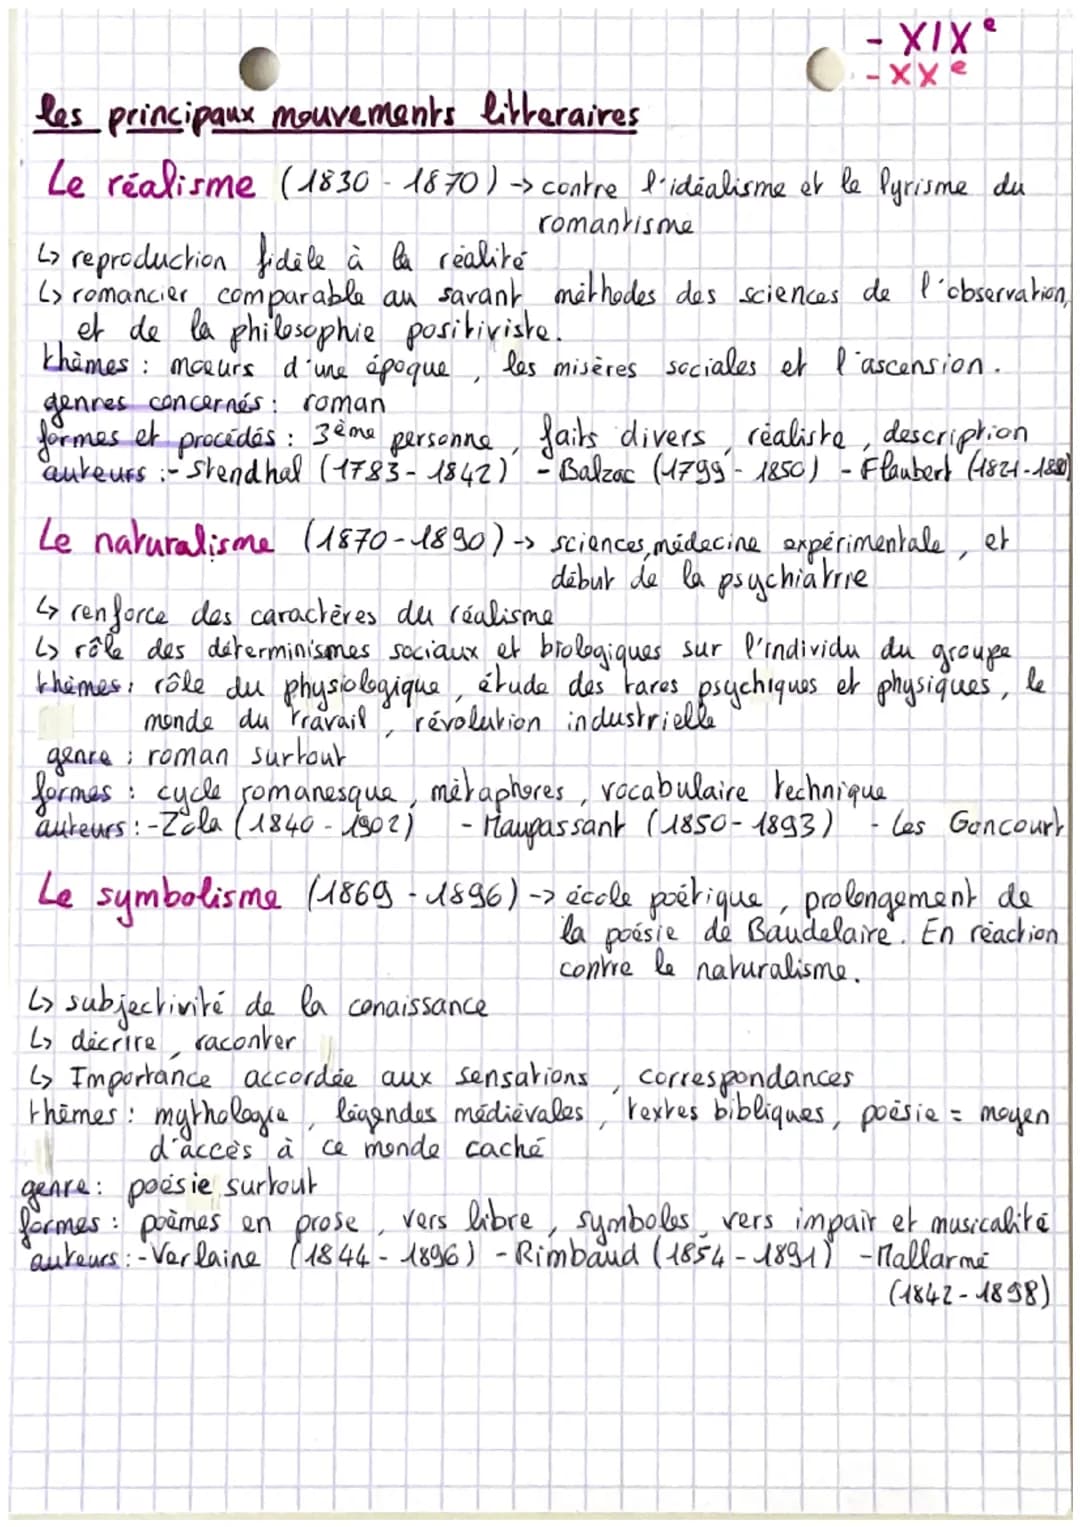 - XIXe
- XXe
les principaux mouvements litteraires
Le réalisme (1830 - 1870) -> contre l'idéalisme et le lyrisme du
romantisme
↳ reproduction fidèle à la réalité
↳ romancier comparable au savant méthodes des sciences de l'observation,
et de la philosophie positiviste.
thèmes : mœurs d'une époque, les misères sociales et l'ascension.
genres concernés : roman
formes et procédés : 3ème personne, faits divers, réaliste, description
auteurs : - Stendhal (1783 - 1842) - Balzac (1799 - 1850) - Flaubert (1821 - 1880)
Le naturalisme (1870 - 1890) -> sciences, médecine expérimentale, et
début de la psychiatrie
↳ renforce des caractères du réalisme
↳ rôle des déterminismes sociaux et biologiques sur l'individu du groupe
thèmes : rôle du physiologique, étude des tares psychiques et physiques, le
monde du travail, révolution industrielle
genre : roman surtout
formes : cycle romanesque, métaphores, vocabulaire technique
auteurs : - Zola (1840 - 1902) - Maupassant (1850 - 1893) - Les Goncourt
Le symbolisme (1869 - 1896) -> école poétique, prolongement de
la poésie de Baudelaire. En réaction
contre le naturalisme.
↳ subjectivité de la conaissance
↳ décrire, raconter
↳ Importance accordée aux sensations, correspondances
thèmes : mythologie, légendes médiévales, textes bibliques, poésie = moyen
d'accès à ce monde caché
genre : poésie surtout
formes : poèmes en prose, vers libre, symboles, vers impair et musicalité
auteurs : - Verlaine (1844 - 1896) - Rimbaud (1854 - 1891) - Mallarmé
(1842 - 1898)